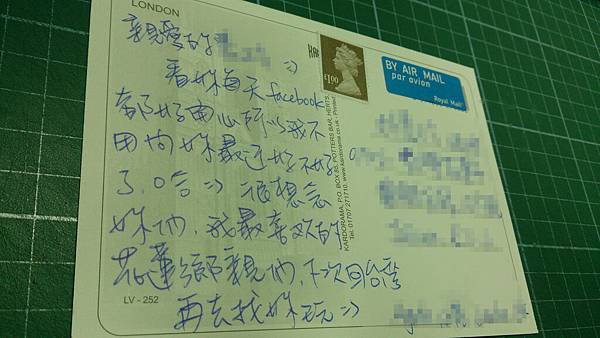 LONDON
親愛的
:)
看妳每天facebook
都好開心所以我不
用問妳最近好不好
了,哈 :) 很想念
妳們,我最喜歡的
花蓮鄉親們,下次回台灣
再去找妳玩 :)
LV - 252
KARDORAMA, P.O. BOX 85, POTTERS BAR, HERTS.
Tel: 01707 271710. www.kardorama.co.uk
£1.00
BY AIR MAIL
par avion
Royal Mail